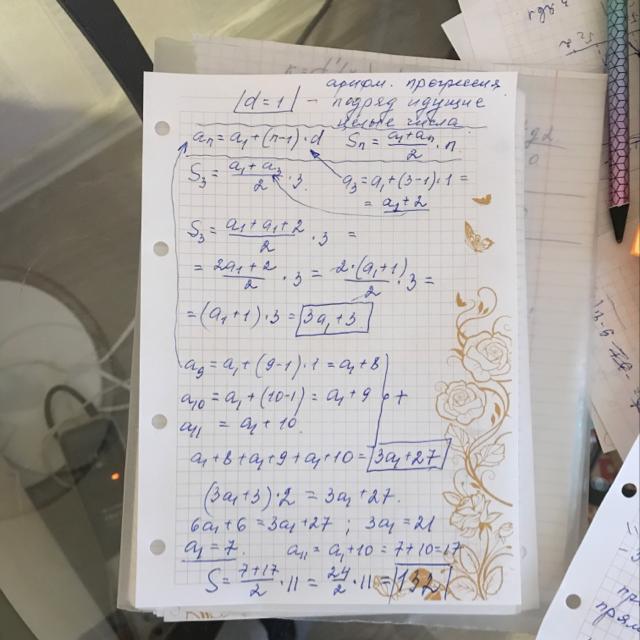 арифм. прогрессия
d=1 - подряд идущие
целые числа
aₙ=a₁+(n-1)·d Sₙ=(a₁+aₙ)/2·n
S₃=(a₁+a₃)/2·3 a₃=a₁+(3-1)·1=
=a₁+2
S₃=(a₁+a₁+2)/2·3=
=(2a₁+2)/2·3=2·(a₁+1)/2·3=
=(a₁+1)·3=3a₁+3
a₉=a₁+(9-1)·1=a₁+8
a₁₀=a₁+(10-1)=a₁+9 +
a₁₁=a₁+10
a₁+8+a₁+9+a₁+10=3a₁+27
(3a₁+3)·2=3a₁+27.
6a₁+6=3a₁+27; 3a₁=21
a₁=7 a₁₁=a₁+10=7+10=17
S=(7+17)/2·11=24/2·11=132